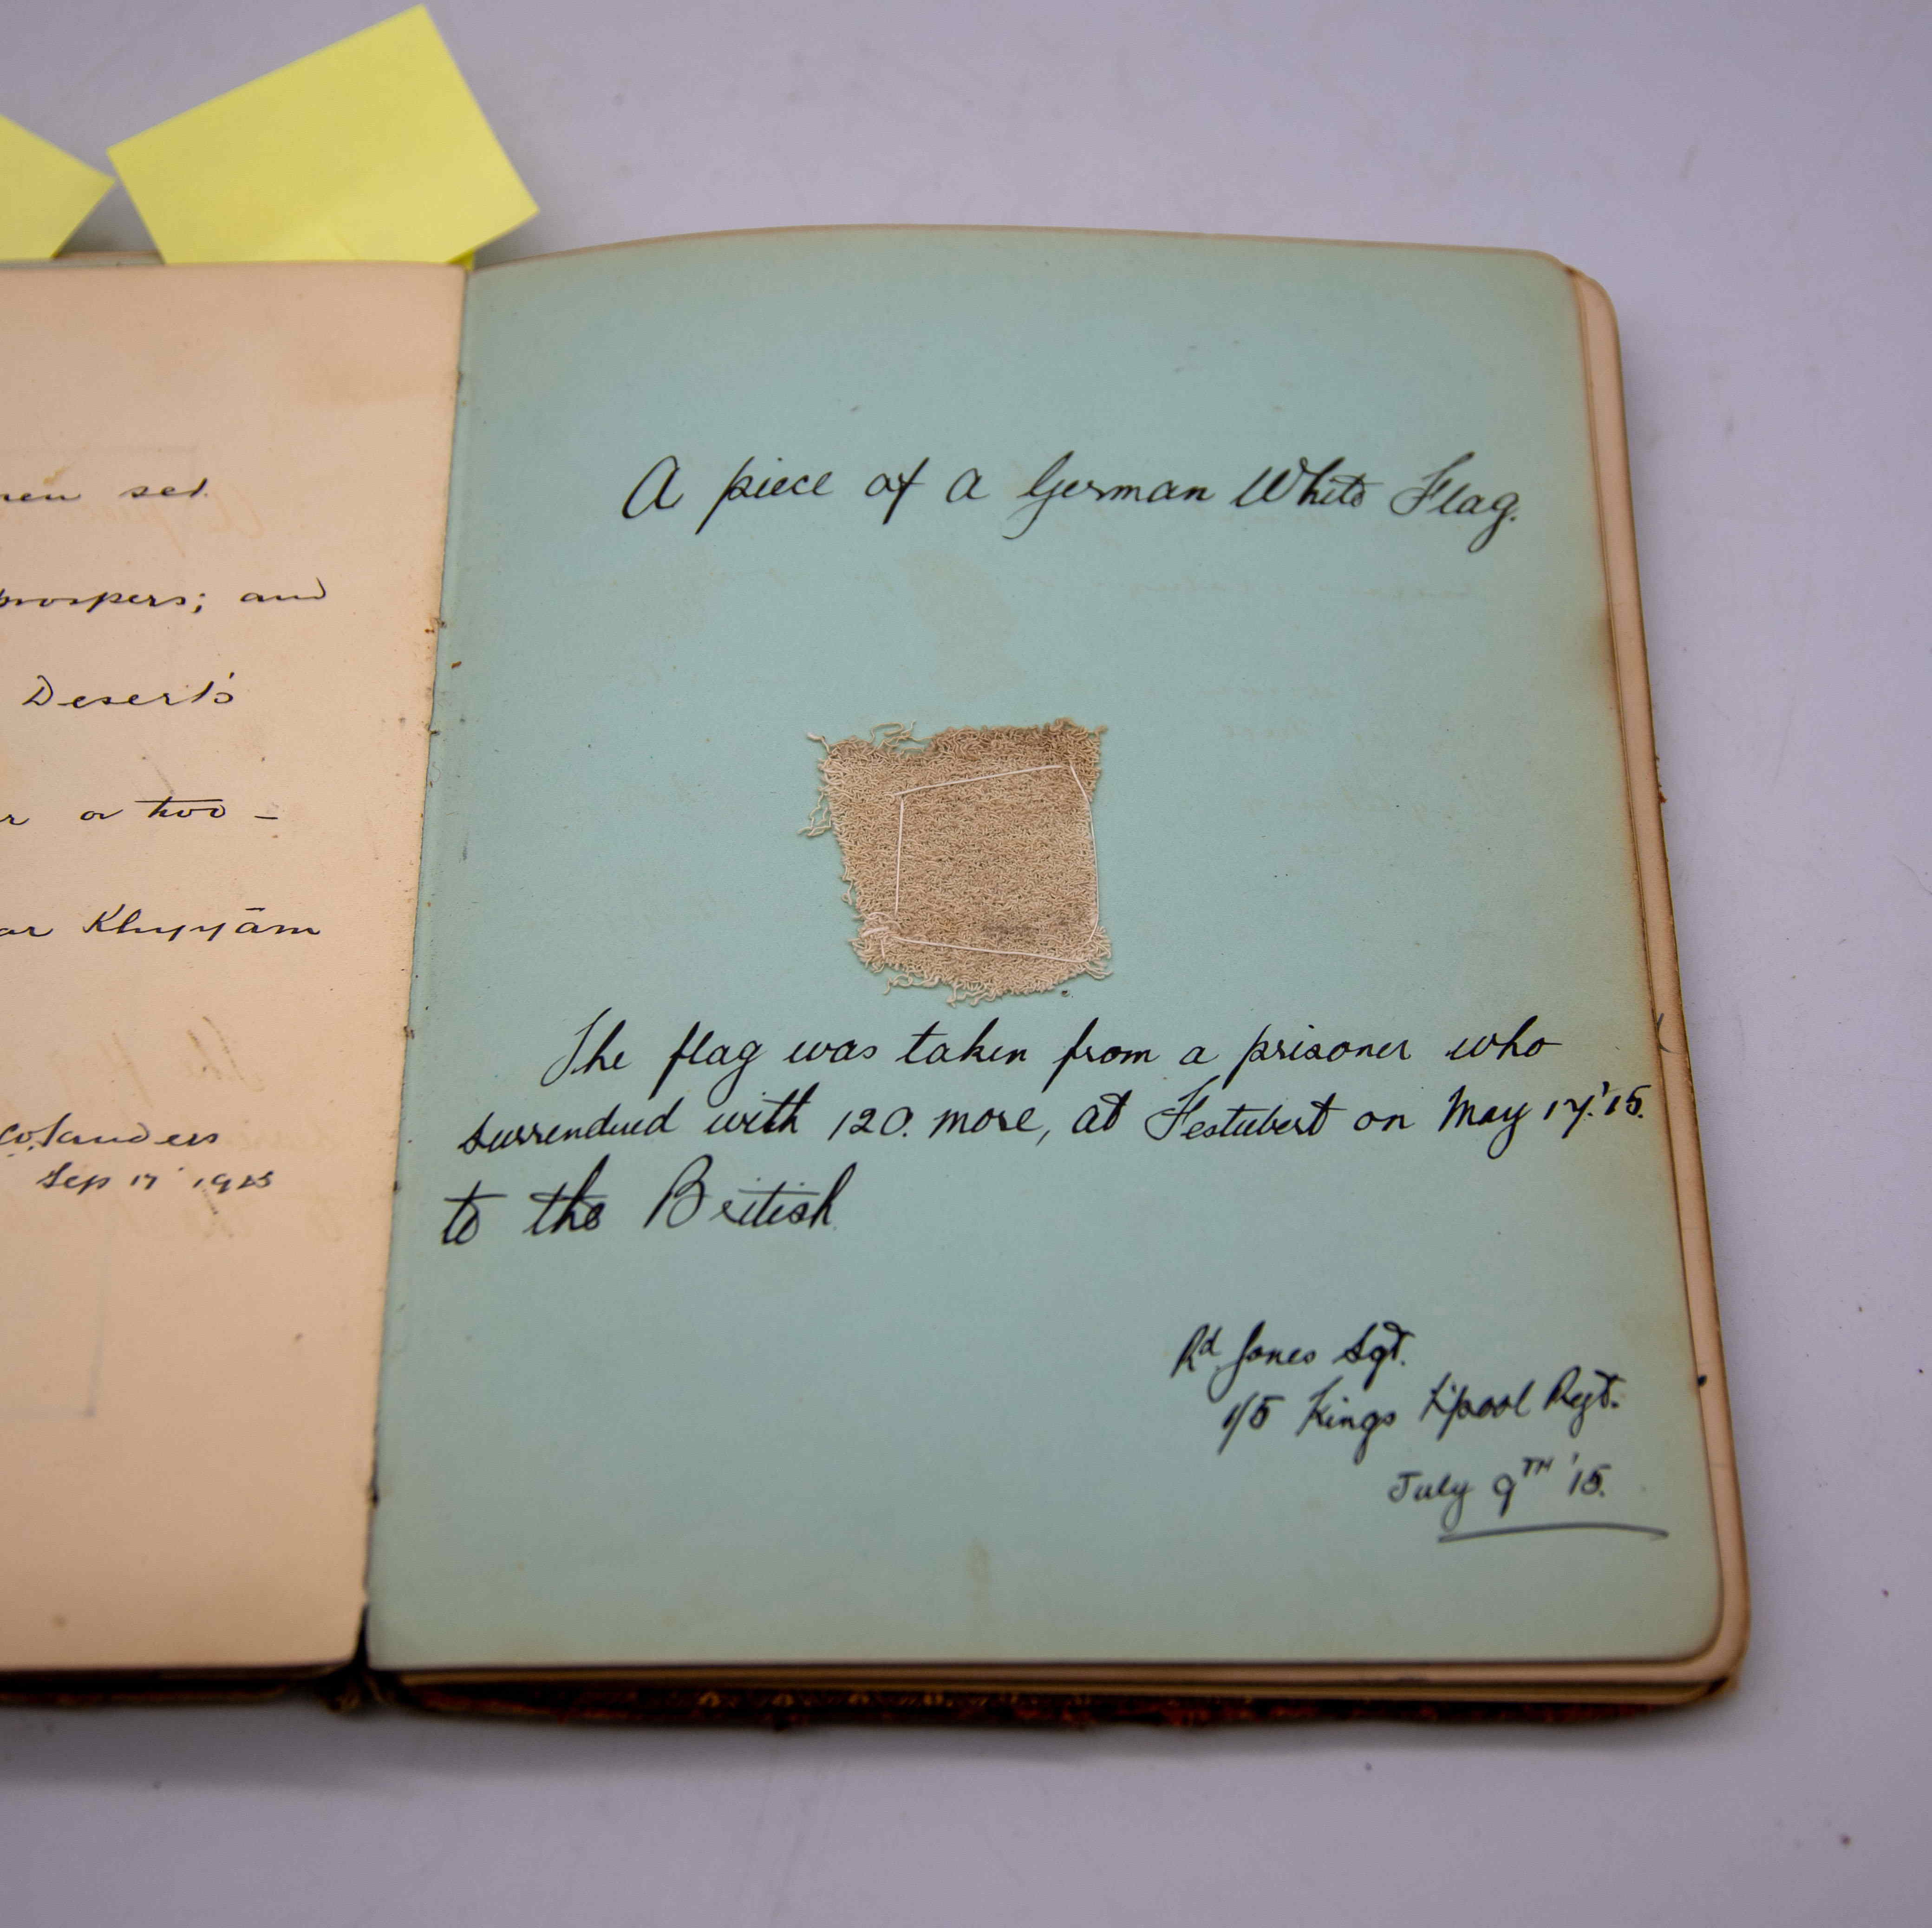 set.
prospers; and
Desert's
or two -
Khyyām
Sep 17 1915
A piece of a German White Flag.
The flag was taken from a prisoner who
surrendued with 120. more, at Festubert on May 17.'15.
to the British.
Rd Jones Sgt.
1/5 Kings L'pool Regt.
July 9TH '15.